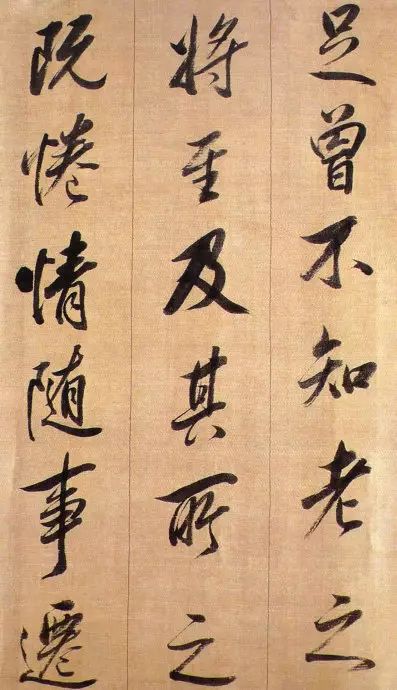 足曾不知老之
将至及其所之
既惓情随事遷